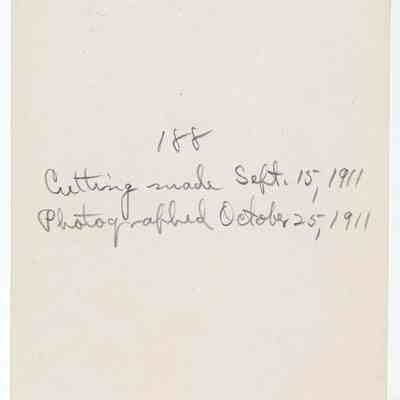 188
Cutting made Sept. 15, 1911
Photographed October 25, 1911